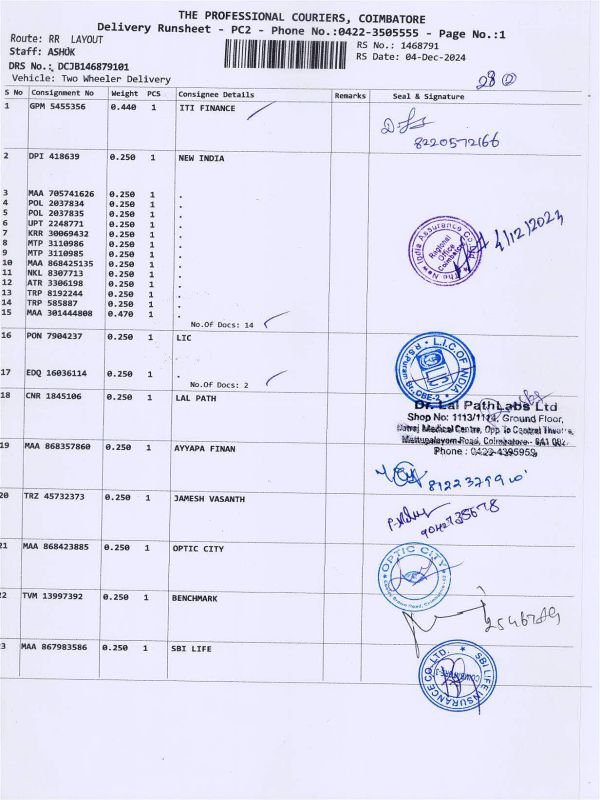 THE PROFESSIONAL COURIERS, COIMBATORE
Delivery Runsheet - PC2 - Phone No.:0422-3505555 - Page No.:1
Route: RR LAYOUT
RS No.: 1468791
Staff: ASHOK
RS Date: 04-Dec-2024
DRS No.: DCJB146879101
Vehicle: Two Wheeler Delivery
28
S No Consignment No Weight PCS Consignee Details Remarks Seal & Signature
1 GPM 5455356 0.440 1 ITI FINANCE
8220572166
2 DPI 418639 0.250 1 NEW INDIA
3 MAA 705741626 0.250 1 .
4 POL 2037834 0.250 1 .
5 POL 2037835 0.250 1 .
6 UPT 2248771 0.250 1 .
7 KRR 30069432 0.250 1 .
8 MTP 3110986 0.250 1 .
9 MTP 3110985 0.250 1 .
10 MAA 868425135 0.250 1 .
11 NKL 8307713 0.250 1 .
12 ATR 3306198 0.250 1 .
13 TRP 8192244 0.250 1 .
14 TRP 585887 0.250 1 .
15 MAA 301444808 0.470 1 .
The New India Assurance Co. Ltd
Regional
Office
Coimbatore
4/12/2024
No.Of Docs: 14
16 PON 7904237 0.250 1 LIC
L.I.C. OF INDIA
R.S.Puram Br. CBE-2
17 EDQ 16036114 0.250 1 .
No.Of Docs: 2
18 CNR 1845106 0.250 1 LAL PATH
Dr. Lal PathLabs Ltd
Shop No: 1113/1114, Ground Floor,
Medical Centre, Opp. To Central Theatre,
Mettupalayam Road, Coimbatore - 641 002.
Phone : 0422-4395959
19 MAA 868357860 0.250 1 AYYAPA FINAN
20 TRZ 45732373 0.250 1 JAMESH VASANTH
9042735678
21 MAA 868423885 0.250 1 OPTIC CITY
OPTIC CITY
22 TVM 13997392 0.250 1 BENCHMARK
23 MAA 867983586 0.250 1 SBI LIFE
SBI LIFE INSURANCE CO. LTD.